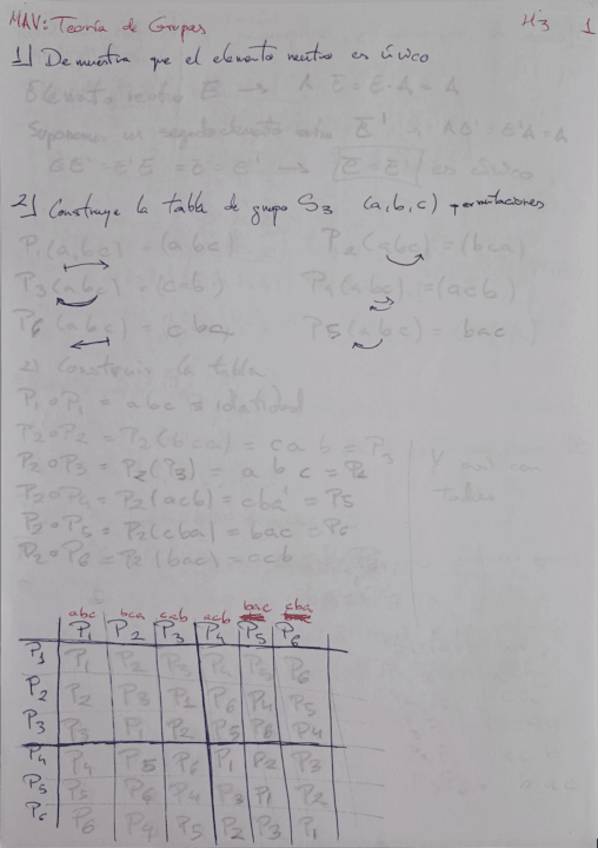 MAV: Teoría de Grupos H3 1
1) Demuestra que el elemento neutro es único
Elemento neutro E → A E = E·A = A
Suponemos un segundo elemento neutro E' → AE' = E'A = A
EE' = E'E = E = E' → E = E' es único
2) Construye la tabla de grupo S3 (a,b,c) permutaciones
P1(a,b,c) = (abc) P2(abc) = (bca)
P3(abc) = (cab) P4(abc) = (acb)
P6(abc) = cba P5(abc) = bac
2) Construir la tabla
P1∘P1 = abc = identidad
P2∘P2 = P2(bca) = cab = P3
P2∘P3 = P2(P3) = abc = P1 Y así con
P2∘P4 = P2(acb) = cba = P5 todas
P2∘P5 = P2(cba) = bac = P6
P2∘P6 = P2(bac) = acb
abc bca cab acb bac cba
P1 P2 P3 P4 P5 P6
P1 P1 P2 P3 P4 P5 P6
P2 P2 P3 P1 P6 P4 P5
P3 P3 P1 P2 P5 P6 P4
P4 P4 P5 P6 P1 P2 P3
P5 P5 P6 P4 P3 P1 P2
P6 P6 P4 P5 P2 P3 P1